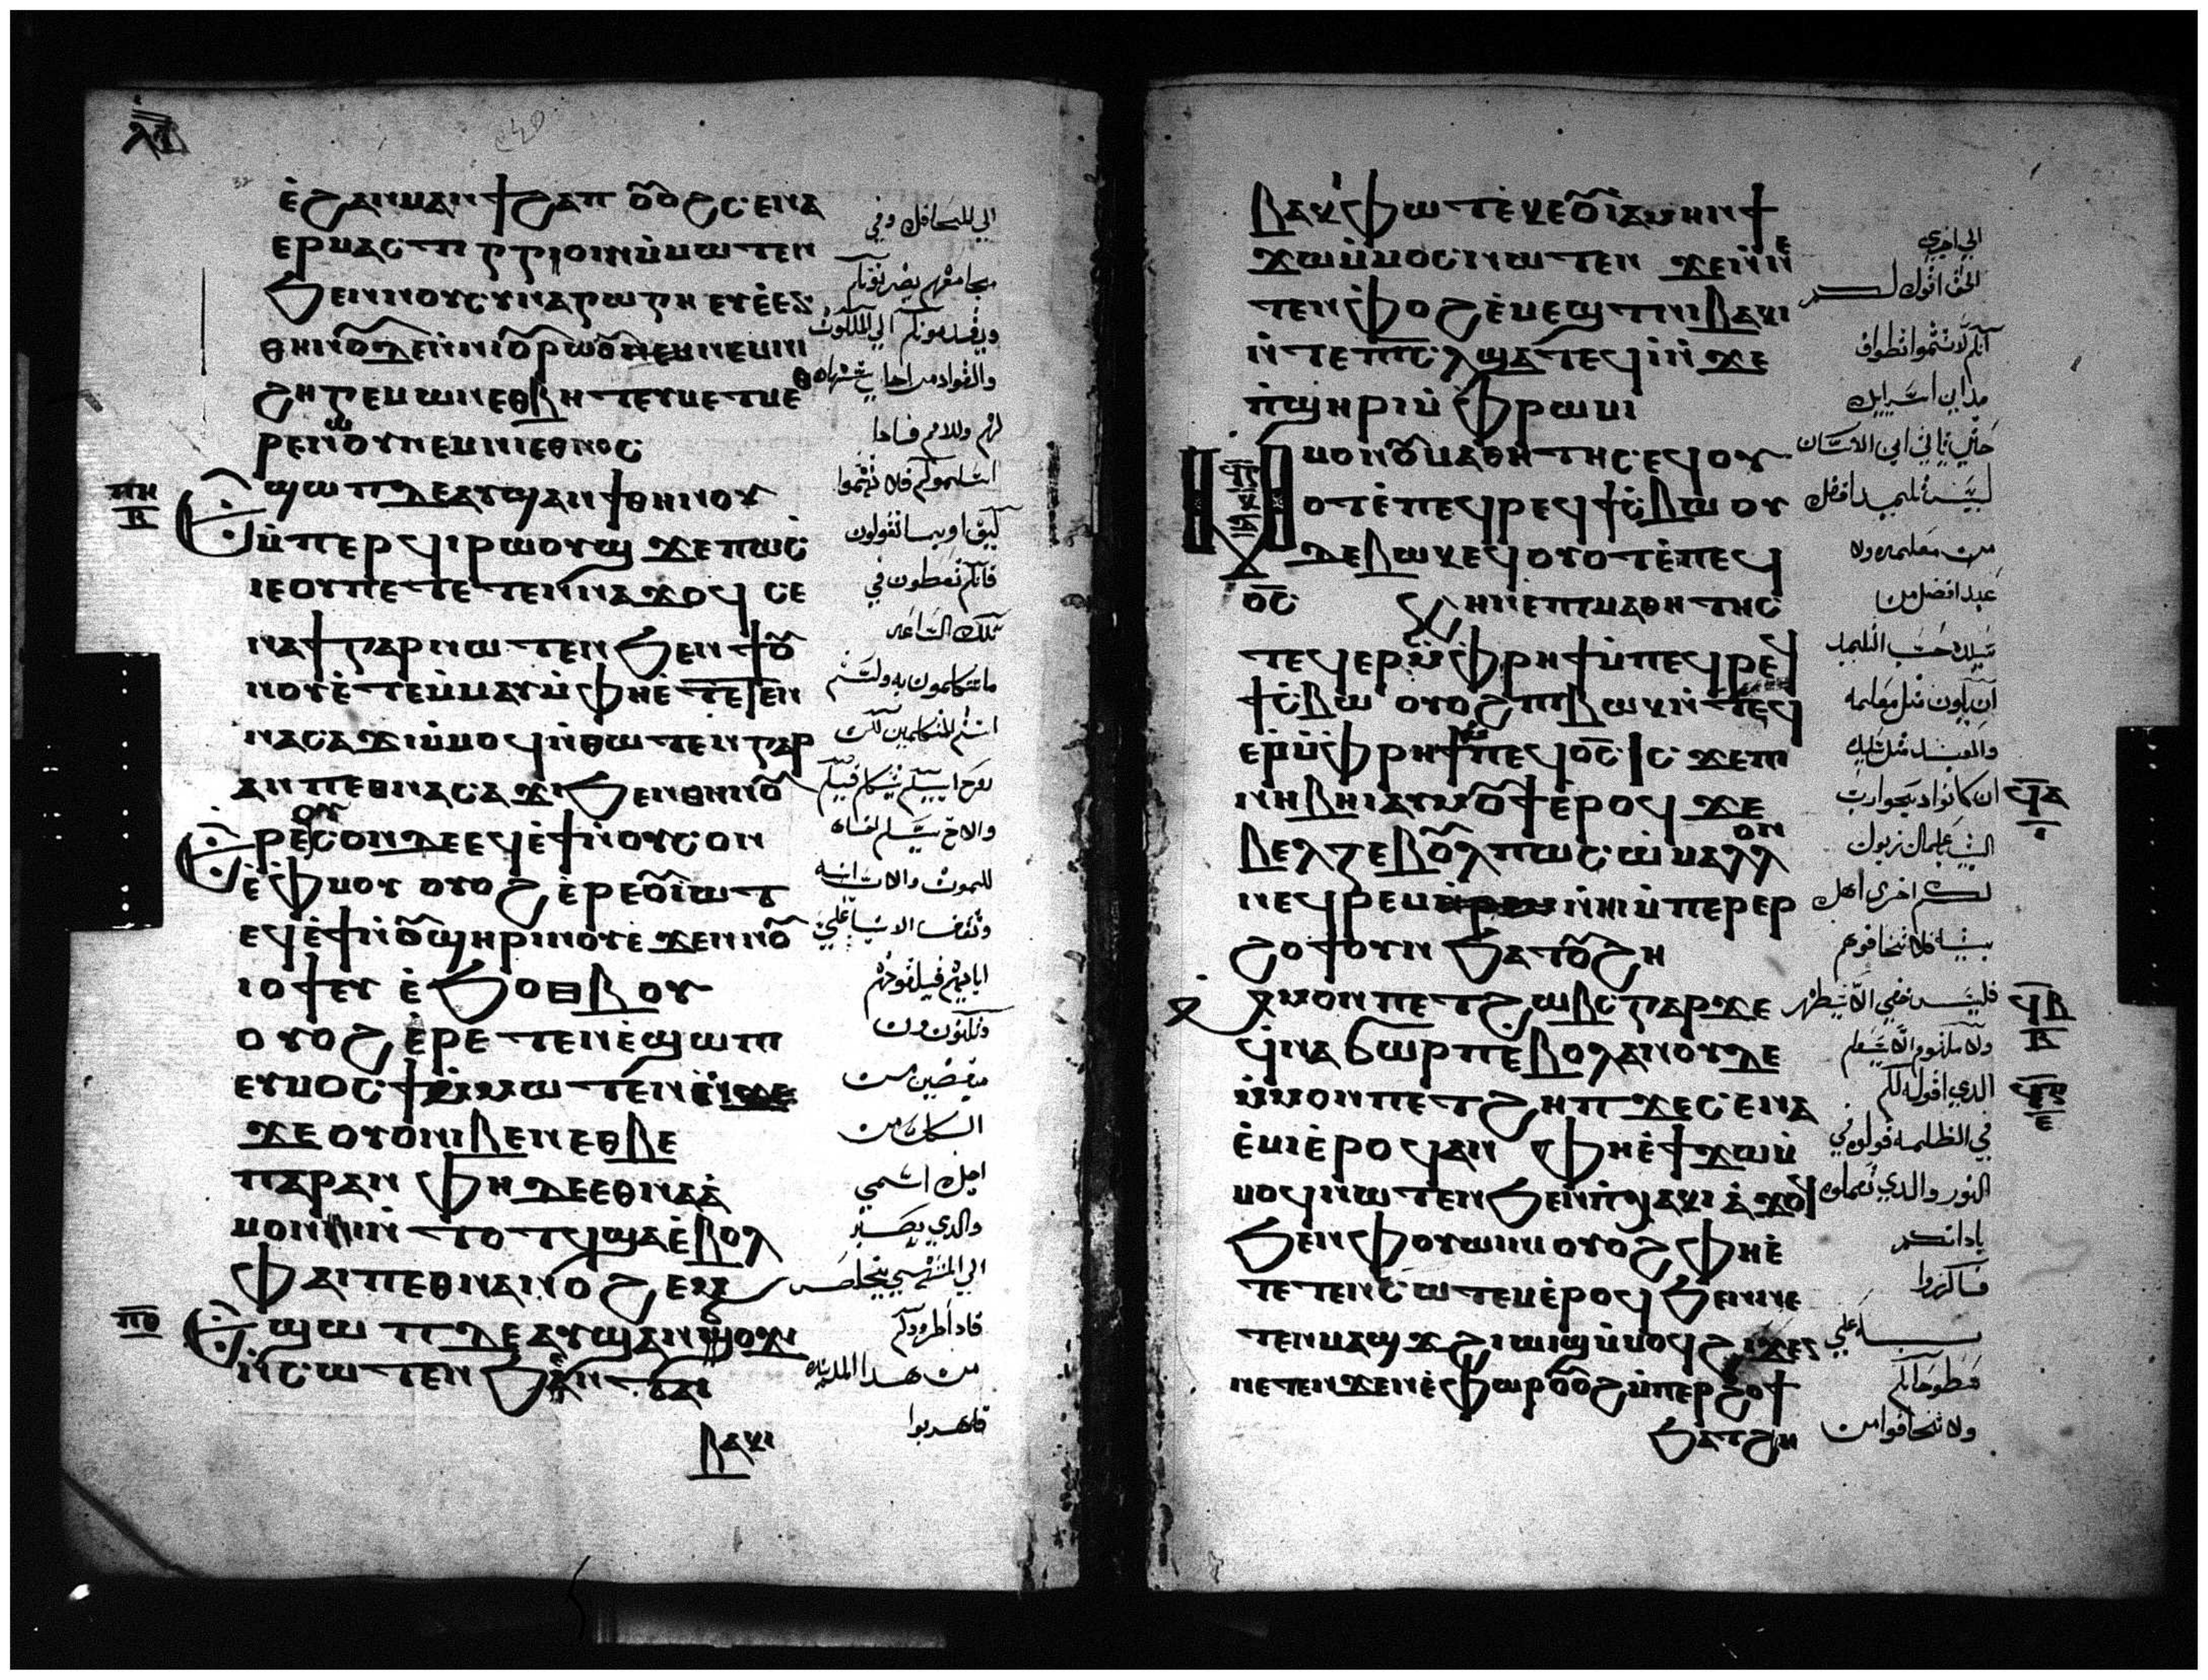 ⲗⲃ
ⲉ̀ϩⲁⲛⲙⲁⲛϯϩⲁⲡ ⲟⲩⲟϩ ⲥⲉⲛⲁ
ⲉⲣⲙⲁⲥⲧⲓⲅⲅⲓⲟⲓⲛⲙ̀ⲙⲱⲧⲉⲛ
ϧⲉⲛⲛⲟⲩⲥⲩⲛⲁⲅⲱⲅⲏ ⲉⲩⲉ̀ⲉⲛ
ⲑⲏⲛⲟⲩⲇⲉ
ϩⲏⲅⲉⲙⲱⲛ ⲉⲑⲃⲏⲧ ⲉⲩⲙⲉⲧⲙⲉⲑ
ⲣⲉⲛⲱⲟⲩ ⲛⲉⲙⲛⲓⲉⲑⲛⲟⲥ
ⲡⲏ
ⲃ
ⲉϣⲱⲡ ⲇⲉ ⲁⲩϣⲁⲛϯⲑⲏⲛⲟⲩ
ⲙ̀ⲡⲉⲣϥⲓⲣⲱⲟⲩϣ ϫⲉ ⲡⲱⲥ
ⲓⲉ ⲟⲩ ⲡⲉⲧⲉⲧⲉⲛⲛⲁϫⲟϥ ⲥⲉ
ⲛⲁϯ ⲅⲁⲣ ⲛⲱⲧⲉⲛ ϧⲉⲛϯⲟⲩ
ⲛⲟⲩ ⲉ̀ⲧⲉⲙ̀ⲙⲁⲩ ⲙ̀ⲫⲏⲉ̀ⲧⲉⲧⲉⲛ
ⲛⲁⲥⲁϫⲓ ⲙ̀ⲙⲟϥ ⲛ̀ⲑⲱⲧⲉⲛ ⲅⲁⲣ
ⲁⲛ ⲡⲉⲑⲛⲁⲥⲁϫⲓ ϧⲉⲛⲑⲏⲛⲟⲩ
ⲉⲣⲉⲟⲩⲥⲟⲛ ⲇⲉ ⲉϥⲉ̀ϯ ⲛ̀ⲟⲩⲥⲟⲛ
ⲉ̀ⲫⲙⲟⲩ ⲟⲩⲟϩ ⲉ̀ⲣⲉⲟⲩⲓ̀ⲱⲧ
ⲉϥⲉ̀ϯ ⲛ̀ⲟⲩϣⲏⲣⲓ
ⲓⲟϯ ⲉⲩⲉ̀ϧⲟⲑⲃⲟⲩ
ⲟⲩⲟϩ ⲉ̀ⲣⲉⲧⲉⲛⲉ̀ϣⲱⲡⲓ
ⲉⲩⲙⲟⲥϯ ⲙ̀ⲙⲱⲧⲉⲛ
ϫⲉ ⲟⲩⲟⲛ ⲛⲓⲃⲉⲛ ⲉⲑⲃⲉ
ⲡⲁⲣⲁⲛ ⲫⲏ ⲇⲉ ⲉⲑⲛⲁⲁ̀
ⲙⲟⲛⲓ ⲛ̀ⲧⲟⲧϥ ϣⲁⲉ̀ⲃⲟⲗ
ⲫⲁⲓ ⲡⲉⲑⲛⲁⲛⲟϩⲉⲙ
ⲡⲑ
ⲉϣⲱⲡ ⲇⲉ ⲁⲩϣⲁⲛϭⲟϫⲓ
ⲛ̀ⲥⲱⲧⲉⲛ ϧⲉⲛⲧⲁⲓ
ⲃⲁⲕⲓ
الي المحافل وفي
مجامعهم يضربونكم
ويقدمونكم الي الملوك
والقواد من اجلي شهادة
لهم وللامم فاذا
اسلموكم فلا تهتموا
كيف او بما تقولون
فانكم تعطون في
تلك الساعه
ما تتكلمون به ولستم
انتم المتكلمين لكن
روح ابيكم يتكلم فيكم
والاخ يسلم اخاه
للموت والاب ابنه
ابايهم فيقتلونهم
وتكونون
مبغضين من
الكل من
اجل اسمي
والذي يصبر
الي المنتهي يخلص
فاذا طردوكم
من هذا المدينه
فاهربوا
ⲃⲁⲕⲓ ⲫⲱⲧ ⲉ̀ⲕⲉⲟⲩⲓ̀ ⲁⲙⲏⲛ ϯ
ϫⲱ ⲙ̀ⲙⲟⲥ ⲛⲱⲧⲉⲛ ϫⲉ ⲛ̀ⲛⲉ
ⲧⲉⲛⲫⲟϩ ⲉ̀ⲙⲉϣⲧ ⲛⲓⲃⲁⲕⲓ
ⲛ̀ⲧⲉ ⲡⲓⲥⲗ ϣⲁⲧⲉϥⲓ̀ ⲛ̀ϫⲉ
ⲡ̀ϣⲏⲣⲓ ⲙ̀ⲫⲣⲱⲙⲓ
ⲙ̀ⲙⲟⲛ ⲟⲩⲙⲁⲑⲏⲧⲏⲥ ⲉϥⲟⲩ
ⲟⲧ ⲉ̀ⲡⲉϥⲣⲉϥϯⲥ̀ⲃⲱ ⲟⲩ
ⲇⲉ ⲃⲱⲕ ⲉϥⲟⲩⲟⲧ ⲉ̀ⲡⲉϥ
ⲟ̅ⲥ̅ ϩⲏⲛ ⲉⲡⲓⲙⲁⲑⲏⲧⲏⲥ
ⲧⲉϥⲉⲣ ⲙ̀ⲫⲣⲏϯ ⲙ̀ⲡⲉϥⲣⲉϥ
ϯⲥ̀ⲃⲱ ⲟⲩⲟϩ ⲡⲓⲃⲱⲕ ⲛ̀ⲧⲉϥ
ⲉⲣ ⲙ̀ⲫⲣⲏϯ ⲙ̀ⲡⲉϥⲟ̅ⲥ̅ ⲓⲥϫⲉ ⲡⲓ
ⲛⲏⲃⲏⲓ ⲁⲩⲙⲟⲩϯ ⲉ̀ⲣⲟϥ ϫⲉ
ⲃⲉⲗⲍⲉⲃⲟⲩⲗ ⲡⲱⲥ ⲙⲁⲗⲗⲟⲛ
ⲛⲉϥⲣⲉⲙⲛ̀ⲏⲓ ⲙ̀ⲡⲉⲣⲉⲣ
ϩⲟϯ ⲟⲩⲛ ϧⲁⲧⲟⲩϩⲏ
ⲙ̀ⲙⲟⲛ ⲡⲉⲧϩⲱⲃⲥ ⲅⲁⲣ ϫⲉ
ϥⲛⲁϭⲱⲣⲡ ⲉⲃⲟⲗ ⲁⲛ ⲟⲩⲇⲉ
ⲙ̀ⲙⲟⲛ ⲡⲉⲧϩⲏⲡ ϫⲉ ⲥⲉⲛⲁ
ⲉ̀ⲙⲓ ⲉ̀ⲣⲟϥ ⲁⲛ ⲫⲏⲉ̀ϯϫⲱ ⲙ̀
ⲙⲟϥ ⲛⲱⲧⲉⲛ ϧⲉⲛⲡ̀ⲭⲁⲕⲓ ⲁ̀ϫⲟϥ
ϧⲉⲛⲫⲟⲩⲱⲓⲛⲓ ⲟⲩⲟϩ ⲫⲏⲉ̀
ⲧⲉⲧⲉⲛⲥⲱⲧⲉⲙ ⲉ̀ⲣⲟϥ ϧⲉⲛⲛⲉ
ⲧⲉⲛⲙⲁϣϫ ϩⲓⲱⲓϣ ⲙ̀ⲙⲟϥ ϩⲓϫⲉⲛ
ⲛⲉⲧⲉⲛϫⲉⲛⲉ̀ⲫⲱⲣ ⲟⲩⲟϩ ⲙ̀ⲡⲉⲣϩⲟϯ
ϧⲁⲧϩⲏ
الي اخري
الحق اقول لكم
انكم لا تتموا تطواف
مداين اسراييل
حتي ياتي ابن الانسان
ليس تلميد افضل
من معلمه ولا
عبد افضل من
سيده حسب التلميد
ان يكون مثل معلمه
والعبد مثل سيده
ان كانوا
ϥⲁ
لكم اخري اهل
بيته فلا تخافوهم
فليس خفي الا سيظهر
ϥⲃ
ⲃ
ولا مكتوم الا سيعلم
الدي اقوله لكم
في الظلمه قولوه في
النور والدي
باذانكم
فاكرزوا
به علي
سطوحاتكم
ولا تخافوا من